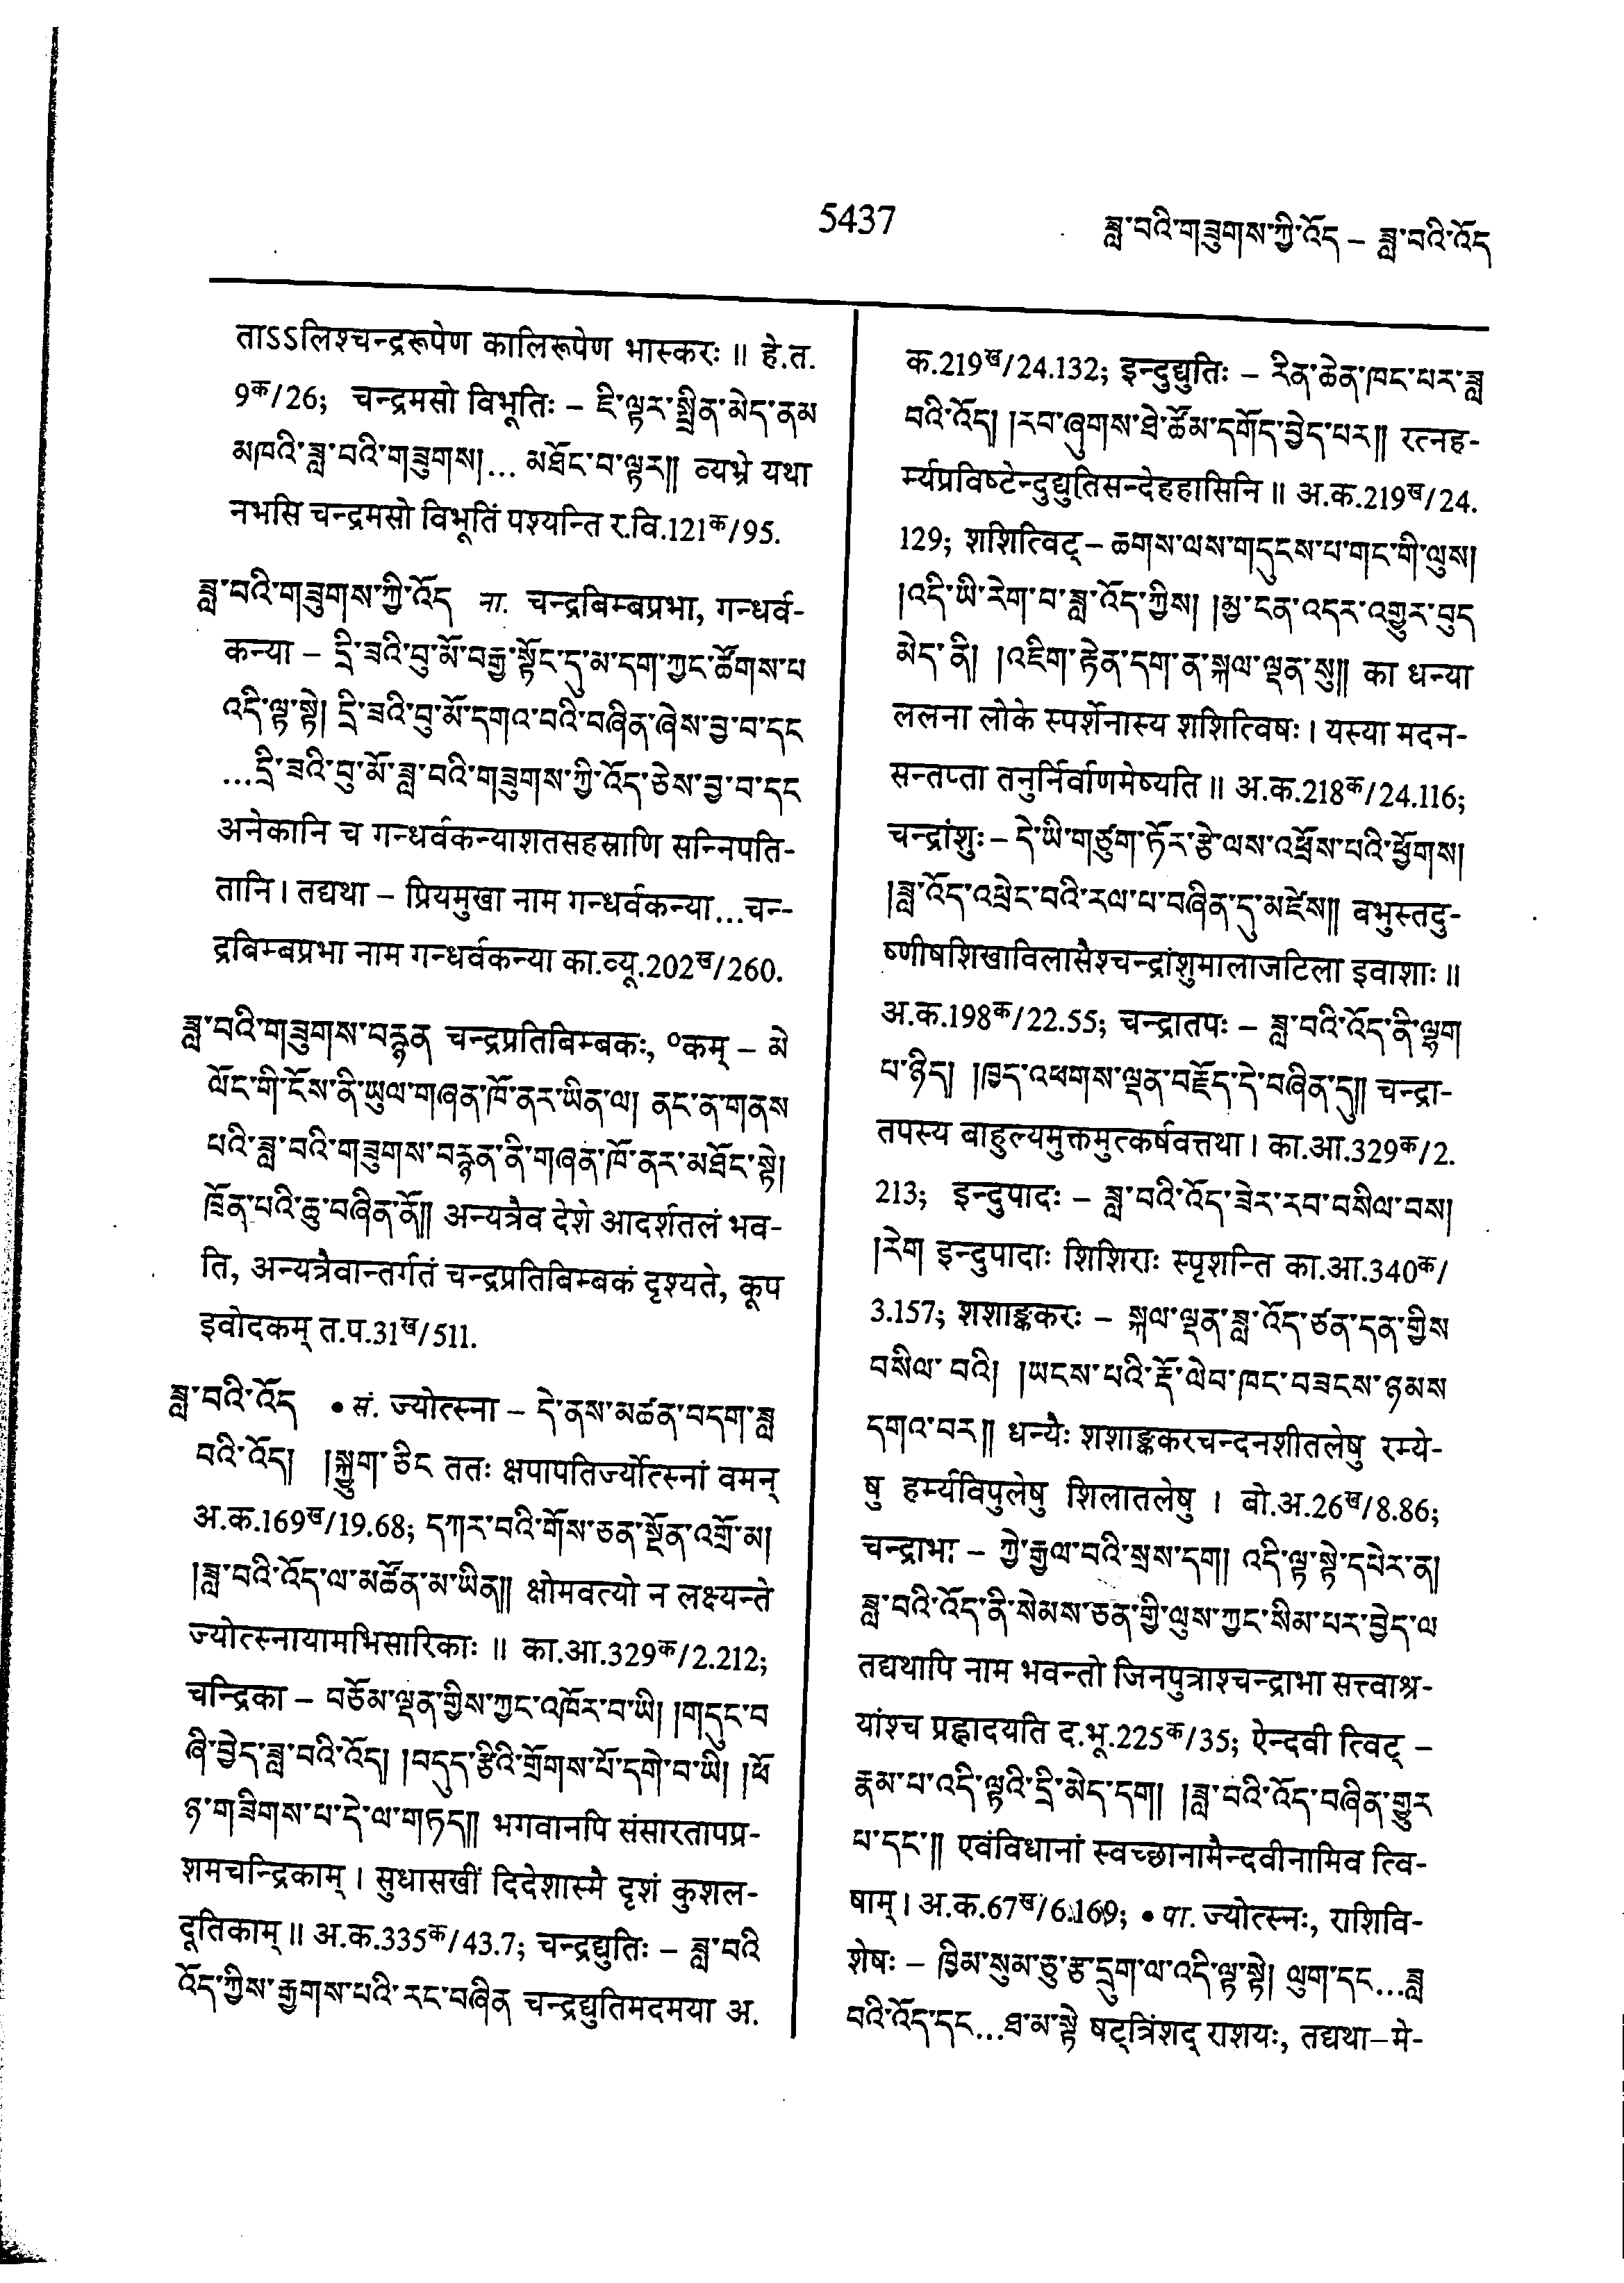 5437
ཟླ་བའི་གཟུགས་ཀྱི་འོད – ཟླ་བའི་འོད
ताऽऽलिश्चन्द्ररूपेण कालिरूपेण भास्करः ॥ हे.त.
9क/26; चन्द्रमसो विभूतिः – ཇི་ལྟར་སྤྲིན་མེད་ནམ
མཁའི་ཟླ་བའི་གཟུགས།... མཐོང་བ་ལྟར།། व्यभ्रे यथा
नभसि चन्द्रमसो विभूतिं पश्यन्ति र.वि.121क/95.
ཟླ་བའི་གཟུགས་ཀྱི་འོད ना. चन्द्रबिम्बप्रभा, गन्धर्व-
कन्या – དྲི་ཟའི་བུ་མོ་བརྒྱ་སྟོང་དུ་མ་དག་ཀྱང་ཚོགས་པ
འདི་ལྟ་སྟེ། དྲི་ཟའི་བུ་མོ་དགའ་བའི་བཞིན་ཞེས་བྱ་བ་དང
...དྲི་ཟའི་བུ་མོ་ཟླ་བའི་གཟུགས་ཀྱི་འོད་ཅེས་བྱ་བ་དང
अनेकानि च गन्धर्वकन्याशतसहस्राणि सन्निपति-
तानि। तद्यथा – प्रियमुखा नाम गन्धर्वकन्या...चन-
द्रबिम्बप्रभा नाम गन्धर्वकन्या का.व्यू.202ख/260.
ཟླ་བའི་གཟུགས་བརྙན चन्द्रप्रतिबिम्बकः, ०कम् – མེ
ལོང་གི་ངོས་ནི་ཡུལ་གཞན་ཁོ་ནར་ཡིན་ལ། ནང་ན་གནས
པའི་ཟླ་བའི་གཟུགས་བརྙན་ནི་གཞན་ཁོ་ནར་མཐོང་སྟེ།
ཁྲོན་པའི་ཆུ་བཞིན་ནོ།། अन्यत्रैव देशे आदर्शतलं भव-
ति, अन्यत्रैवान्तर्गतं चन्द्रप्रतिबिम्बकं दृश्यते, कूप
इवोदकम् त.प.31ख/511.
ཟླ་བའི་འོད • सं. ज्योत्स्ना – དེ་ནས་མཚན་བདག་ཟླ
བའི་འོད། །སྐྱུག་ཅིང ततः क्षपापतिर्ज्योत्स्नां वमन्
अ.क.169ख/19.68; དཀར་བའི་གོས་ཅན་སྔོན་འགྲོ་མ།
།ཟླ་བའི་འོད་ལ་མཚོན་མ་ཡིན།། क्षोमवत्यो न लक्ष्यन्ते
ज्योत्स्नायामभिसारिकाः ॥ का.आ.329क/2.212;
चन्द्रिका – བཅོམ་ལྡན་གྱིས་ཀྱང་འཁོར་བ་ཡི། །གདུང་བ
ཞི་བྱེད་ཟླ་བའི་འོད། །བདུད་རྩིའི་གྲོགས་པོ་དགེ་བ་ཡི། །ཕོ
ཉ་གཟིགས་པ་དེ་ལ་གཏད།། भगवानपि संसारतापप्र-
शमचन्द्रिकाम्। सुधासखीं दिदेशास्मै दृशं कुशल-
दूतिकाम्॥ अ.क.335क/43.7; चन्द्रद्युतिः – ཟླ་བའི
འོད་ཀྱིས་རྒྱགས་པའི་རང་བཞིན चन्द्रद्युतिमदमया अ.
क.219ख/24.132; इन्दुद्युतिः – རིན་ཆེན་ཁང་པར་ཟླ
བའི་འོད། །རབ་ཞུགས་ཐེ་ཚོམ་དགོད་བྱེད་པར།། रत्नह-
र्म्यप्रविष्टेन्दुद्युतिसन्देहहासिनि॥ अ.क.219ख/24.
129; शशित्विट् – ཆགས་ལས་གདུངས་པ་གང་གི་ལུས།
།འདི་ཡི་རེག་བ་ཟླ་འོད་ཀྱིས། །མྱ་ངན་འདར་འགྱུར་བུད
མེད་ནི། །འཇིག་རྟེན་དག་ན་སྐལ་ལྡན་སུ།། का धन्या
ललना लोके स्पर्शेनास्य शशित्विषः। यस्या मदन-
सन्तप्ता तनुर्निर्वाणमेष्यति॥ अ.क.218क/24.116;
चन्द्रांशुः – དེ་ཡི་གཙུག་ཏོར་རྩེ་ལས་འཕྲོས་པའི་ཕྱོགས།
།ཟླ་འོད་འཕྲེང་བའི་རལ་པ་བཞིན་དུ་མཛེས།། बभुस्तदु-
ष्णीषशिखाविलासैश्चन्द्रांशुमालाजटिला इवाशाः॥
अ.क.198क/22.55; चन्द्रातपः – ཟླ་བའི་འོད་ནི་ལྷག
པ་ཉིད། །ཁྱད་འཕགས་ལྡན་བརྗོད་དེ་བཞིན་དུ།། चन्द्रा-
तपस्य बाहुल्यमुक्तमुत्कर्षवत्तथा। का.आ.329क/2.
213; इन्दुपादः – ཟླ་བའི་འོད་ཟེར་རབ་བསིལ་བས།
།རེག इन्दुपादाः शिशिराः स्पृशन्ति का.आ.340क/
3.157; शशाङ्ककरः – སྐལ་ལྡན་ཟླ་འོད་ཙན་དན་གྱིས
བསིལ་བའི། །ཡངས་པའི་རྡོ་ལེབ་ཁང་བཟངས་ཉམས
དགའ་བར།། धन्यैः शशाङ्ककरचन्दनशीतलेषु रम्ये-
षु हर्म्यविपुलेषु शिलातलेषु। बो.अ.26ख/8.86;
चन्द्राभः – ཀྱེ་རྒྱལ་བའི་སྲས་དག། འདི་ལྟ་སྟེ་དཔེར་ན།
ཟླ་བའི་འོད་ནི་སེམས་ཅན་གྱི་ལུས་ཀྱང་སིམ་པར་བྱེད་ལ
तद्यथापि नाम भवन्तो जिनपुत्राश्चन्द्राभा सत्त्वाश्र-
यांश्च प्रह्लादयति द.भू.225क/35; ऐन्दवी त्विट् –
རྣམ་པ་འདི་ལྟའི་དྲི་མེད་དག། །ཟླ་བའི་འོད་བཞིན་གྱུར
པ་དང་།། एवंविधानां स्वच्छानामैन्दवीनामिव त्वि-
षाम्। अ.क.67ख/6.169; • पा. ज्योत्स्नः, राशिवि-
शेषः – ཁྱིམ་སུམ་ཅུ་རྩ་དྲུག་ལ་འདི་ལྟ་སྟེ། ལུག་དང...ཟླ
བའི་འོད་དང...ཐ་མ་སྟེ षट्त्रिंशद् राशयः, तद्यथा–मे-